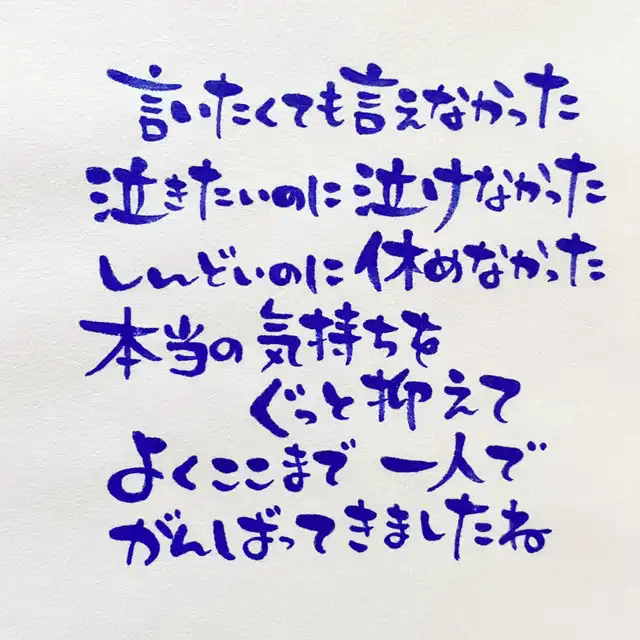 言いたくても言えなかった
泣きたいのに泣けなかった
しんどいのに休めなかった
本当の気持ちを
ぐっと抑えて
よくここまで一人で
がんばってきましたね